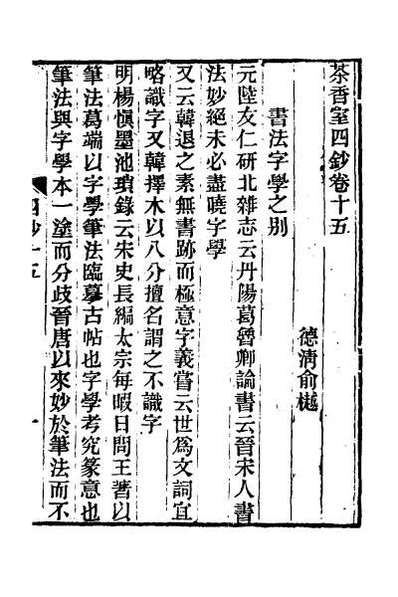 茶香室四鈔卷十五
德淸俞樾
書法字學之别
元陸友仁研北雜志云丹陽葛魯卿論書云晉宋人書
法妙絕未必盡曉字學
又云韓退之素無書跡而極意字義嘗云世爲文詞宜
略識字又韓擇木以八分擅名謂之不識字
明楊愼墨池瑣錄云宋史長編太宗每暇日問王著以
筆法葛端以字學筆法臨摹古帖也字學考究篆意也
筆法與字學本一塗而分歧晉唐以來妙於筆法而不
四鈔十五
一